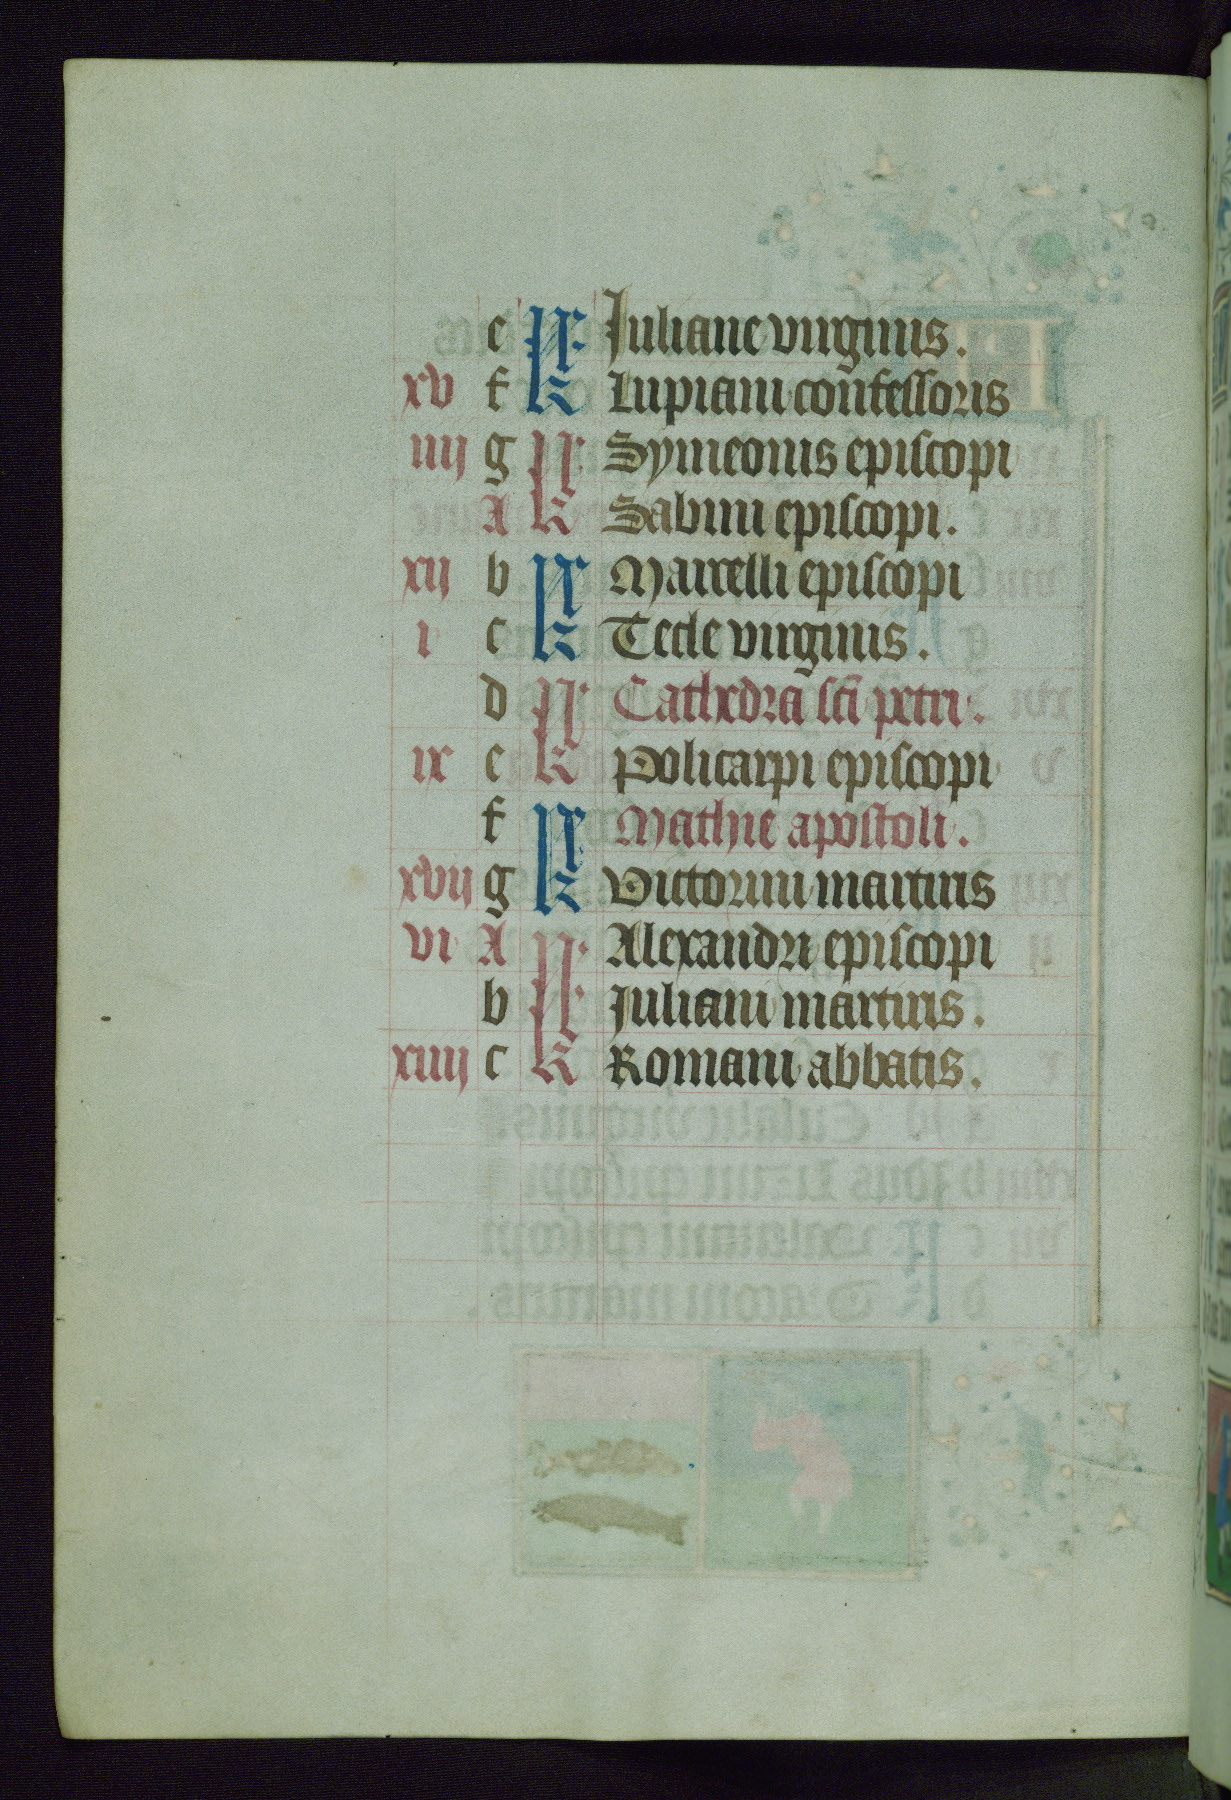 e kl Juliane virginis.
xv f Lupiani confessoris
iiij g kl Symeonis episcopi
A Sabini episcopi.
xij b kl Marcelli episcopi
i c Tecle virginis.
d kl Cathedra sci petri.
ix e Policarpi episcopi
f kl Mathie apostoli.
xvij g Victorini martiris
vi A kl Alexandri episcopi
b Juliani martiris.
xiiij c Romani abbatis.